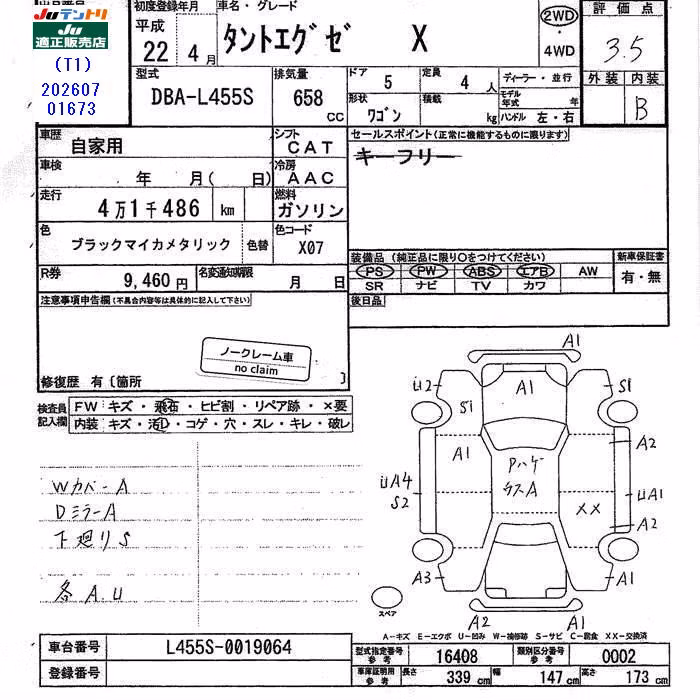 初度登録年月 車名・グレード 評価点
JUテントリ
JU 適正販売店
(T1)
202607
01673
平成 22 4 月 タントエグゼ X 2WD ・ 4WD 3.5
型式 DBA-L455S 排気量 658 CC
ドア 5 定員 4 人 ディーラー・並行 外装 内装
形状 ワゴン 積載 kg モデル年式 年 ハンドル 左・右 B
車歴 自家用 シフト CAT
セールスポイント(正常に機能するものに限ります)
キーフリー
車検 年 月( 日) 冷房 AAC
走行 4万1千486 km 燃料 ガソリン
色 ブラックマイカメタリック 色替 色コード X07
装備品(純正品に限り○をつけてください) 新車保証書
PS PW ABS エアB AW 有・無
SR ナビ TV カワ
R券 9,460 円 名変通知期限 月 日
後日品
注意事項申告欄(不具合内容等は具体的に記入して下さい)
ノークレーム車
no claim
修復歴 有〔箇所 〕
検査員記入欄 FW キズ・飛石・ヒビ割・リペア跡・×要
内装 キズ・汚レ・コゲ・穴・スレ・キレ・破レ
Wカバ-A
Dミラ-A
下廻りS
各A.U
A1
U2 A1 S1
S1
A1 A2
Pハゲ
ラスA
UA4 UA1
S2
XX A2
A3 A1
スペア
A2 A1
A-キズ E-エクボ U-凹み W-補修跡 S-サビ C-腐食 XX-交換済
車台番号 L455S-0019064
型式指定番号 参考 16408 類別区分番号 参考 0002
登録番号
車庫証明用 参考 長さ 339 cm 幅 147 cm 高さ 173 cm